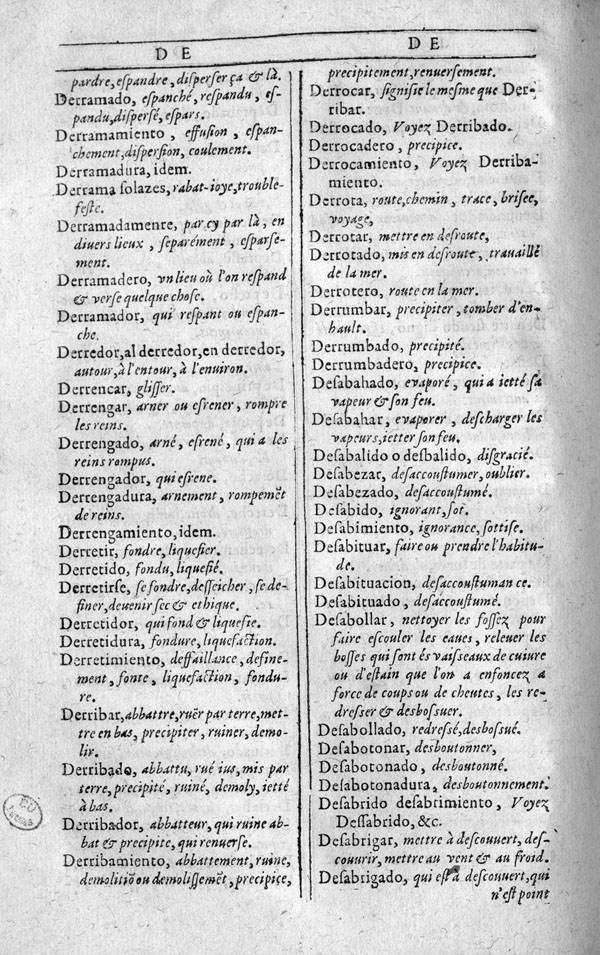 D E
pardre, espandre, disperser ça & là.
Derramado, espanché, respandu, es-
pandu, dispersé, espars.
Derramamiento, effusion, espan-
chement, dispersion, coulement.
Derramadura, idem.
Derrama solazes, rabat-ioye, trouble-
feste.
Derramadamente, par cy par là, en
diuers lieux, separément, esparse-
ment.
Derramadero, vn lieu où l'on respand
& verse quelque chose.
Derramador, qui respant ou espan-
che.
Derredor, al derredor, en derredor,
autour, à l'entour, à l'enuiron.
Derrencar, glisser.
Derrengar, arner ou esrener, rompre
les reins.
Derrengado, arné, esrené, qui a les
reins rompus.
Derrengador, qui esrene.
Derrengadura, arnement, rompemẽt
de reins.
Derrengamiento, idem.
Derretir, fondre, liquefier.
Derretido, fondu, liquefié.
Derretirse, se fondre, desseicher, se de-
finer, deuenir sec & ethique.
Derretidor, qui fond & liquefie.
Derretidura, fondure, liquefaction.
Derretimiento, deffaillance, define-
ment, fonte, liquefaction, fondu-
re.
Derribar, abbattre, ruër par terre, met-
tre en bas, precipiter, ruiner, demo-
lir.
Derribado, abbattu, rué ius, mis par
terre, precipité, ruiné, demoly, ietté
à bas.
Derribador, abbatteur, qui ruine ab-
bat & precipite, qui renuerse.
Derribamiento, abbattement, ruine,
demolitiõ ou demolissemẽt, precipice,
D E
precipitement, renuersement.
Derrocar, signifie le mesme que Der-
ribar.
Derrocado, Voyez Derribado.
Derrocadero, precipice.
Derrocamiento, Voyez Derriba-
miento.
Derrota, route, chemin, trace, brisee,
voyage,
Derrotar, mettre en desroute,
Derrotado, mis en desroute, trauaillé
de la mer.
Derrotero, route en la mer.
Derrumbar, precipiter, tomber d'en-
hault.
Derrumbado, precipité.
Derrumbadero, precipice.
Desabahado, euaporé, qui a ietté sa
vapeur & son feu.
Desabahar, euaporer, descharger les
vapeurs, ietter son feu.
Desabalido o desbalido, disgracié.
Desabezar, desaccoustumer, oublier.
Desabezado, desaccoustumé.
Desabido, ignorant, sot.
Desabimiento, ignorance, sottise.
Desabituar, faire ou prendre l'habitu-
de.
Desabituacion, desaccoustumance.
Desabituado, desaccoustumé.
Desabollar, nettoyer les fossez pour
faire escouler les eaues, releuer les
bosses qui sont és vaisseaux de cuiure
ou d'estain que l'on a enfoncez a
force de coups ou de cheutes, les re-
dresser & desbossuer.
Desabollado, redressé, desbossué.
Desabotonar, desboutonner,
Desabotonado, desboutonné.
Desabotonadura, desboutonnement.
Desabrido desabrimiento, Voyez
Dessabrido, &c.
Desabrigar, mettre à descouuert, des-
couurir, mettre au vent & au froid.
Desabrigado, qui est à descouuert, qui
n'est point